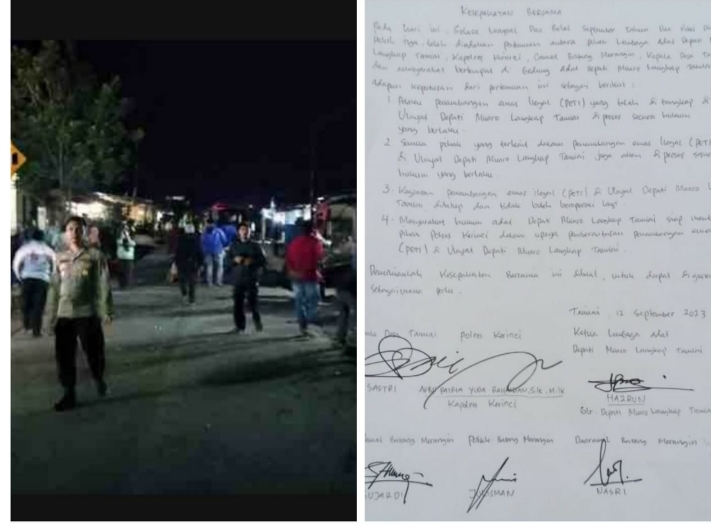 KESEPAKATAN BERSAMA
Pada hari ini, Selasa tanggal Dua Belas September Tahun Dua Ribu Dua
Puluh Tiga telah diadakan pertemuan antara pihak Lembaga Adat Depati
Langkap Tamiai, Kapolres Kerinci, Camat Batang Merangin, Kepala Desa
dan masyarakat bertempat di Gedung Adat Depati Muaro Langkap Tamiai
Adapun kesepakatan dari pertemuan ini sebagai berikut :
1. Pelaku penambangan emas ilegal (PETI) yang telah ditangkap di
Ulayat Depati Muaro Langkap Tamiai di proses secara hukum
yang berlaku.
2. Semua pihak yang terlibat dalam penambangan emas ilegal (PETI)
di Ulayat Depati Muaro Langkap Tamiai juga akan di proses
hukum yang berlaku
3. Kegiatan penambangan emas ilegal (PETI) di Ulayat Depati Muaro
Tamiai ditutup dan tidak boleh beroperasi lagi.
4. Masyarakat hukum adat Depati Muaro Langkap Tamiai siap
pihak Polres Kerinci dalam upaya pemberantasan penambangan
(PETI) di Ulayat Depati Muaro Langkap Tamiai.
Demikianlah Kesepakatan Bersama ini dibuat, untuk dapat
sebagaimana
Tamiai, 12 September 2023
Desa Tamiai Polres Kerinci Ketua Lembaga Adat
Depati Muaro Langkap Tamiai
SAPTRI YUDA M.Si HASRUN
Kapolres Kerinci Depati Muaro Langkap Tamiai
Batang Merangin Batang Merangin Danramil Batang Merangin
JULISMAN NASRI